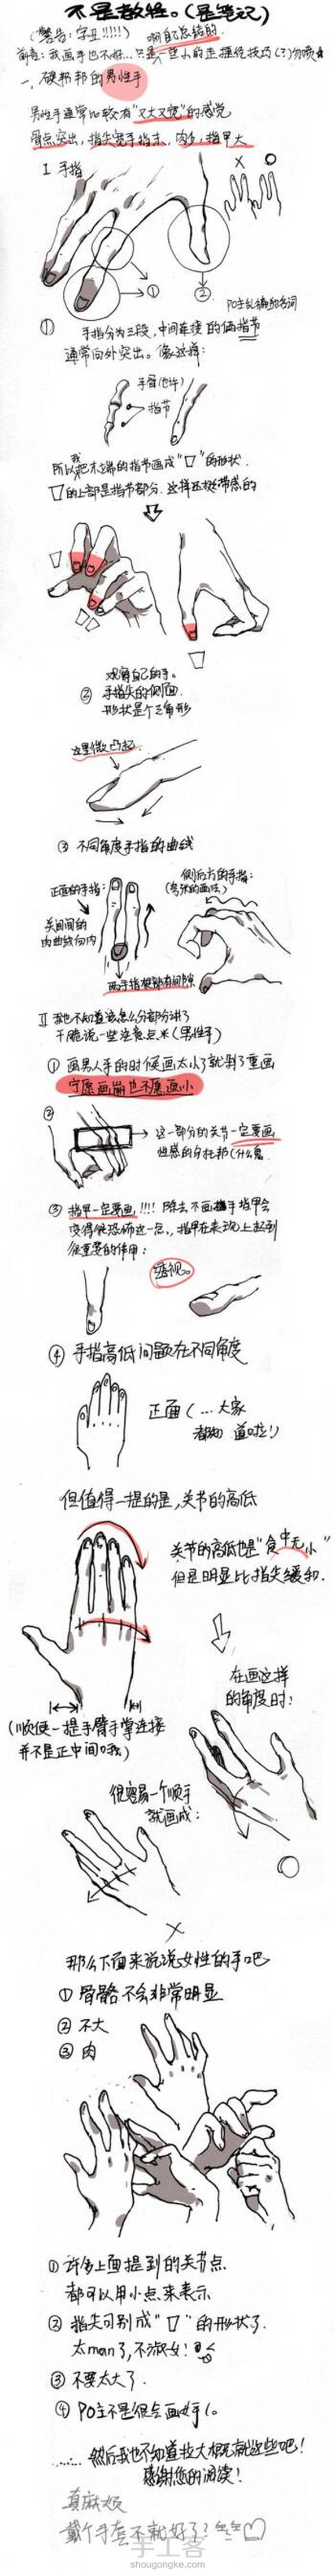 不是教程。(是笔记)
(警告:字丑!!!!!) 啊自己总结的.
一、硬邦邦的男性手
男性手通常比较有"又大又宽"的感觉
骨点突出,指尖宽手指末,肉多,指甲大
I 手指
① ②
PO主乱编的名词
① 手指分为三段,中间连接的俩指节
通常向外突出。像这样:
手骨(也许)
指节
所以我把末端的指节画成"▽"的形状
▽的上部是指节部分.这样还挺带感的
观察自己的手。
② 手指尖的侧面
形状是个三角形
这里微凸起.
③ 不同角度手指的曲线
正面的手指:
关节间的
内曲线向内
侧后方的手指:
(夸张的画法)
两手指根部有间隙
II 我也不知道该怎么分部分讲了
干脆说一些注意点米(男性手)
① 画男人手的时候画太小了就剁了重画
宁愿画崩也不愿画小
②
这一部分的关节一定要画
性感的分托邦(什么鬼
③ 指甲一定要画!!!!
很重要的作用:
透视。
④ 手指高低问题在不同角度
正面(…大家
都知道啦!)
但值得一提的是,关节的高低
关节的高低也是"食中无小"
但是明显比指尖缓和.
在画这样
的角度时:
(顺便一提手臂手掌连接
并不是正中间哦)
很容易一个顺手
就画成:
那么下面来说说女性的手吧
① 骨骼不会非常明显
② 不大
③ 肉
① 许多上面提到的关节点
都可以用小点来表示
② 指尖可别成"▽"的形状了.
太man了,不淑女!
③ 不要太大了.
④ PO主不是很会画女手(。
…… 然后我也不知道扯大概就这些吧!
感谢您的阅读!
真麻烦
戴个手套不就好了?
手工客
shougongke.com